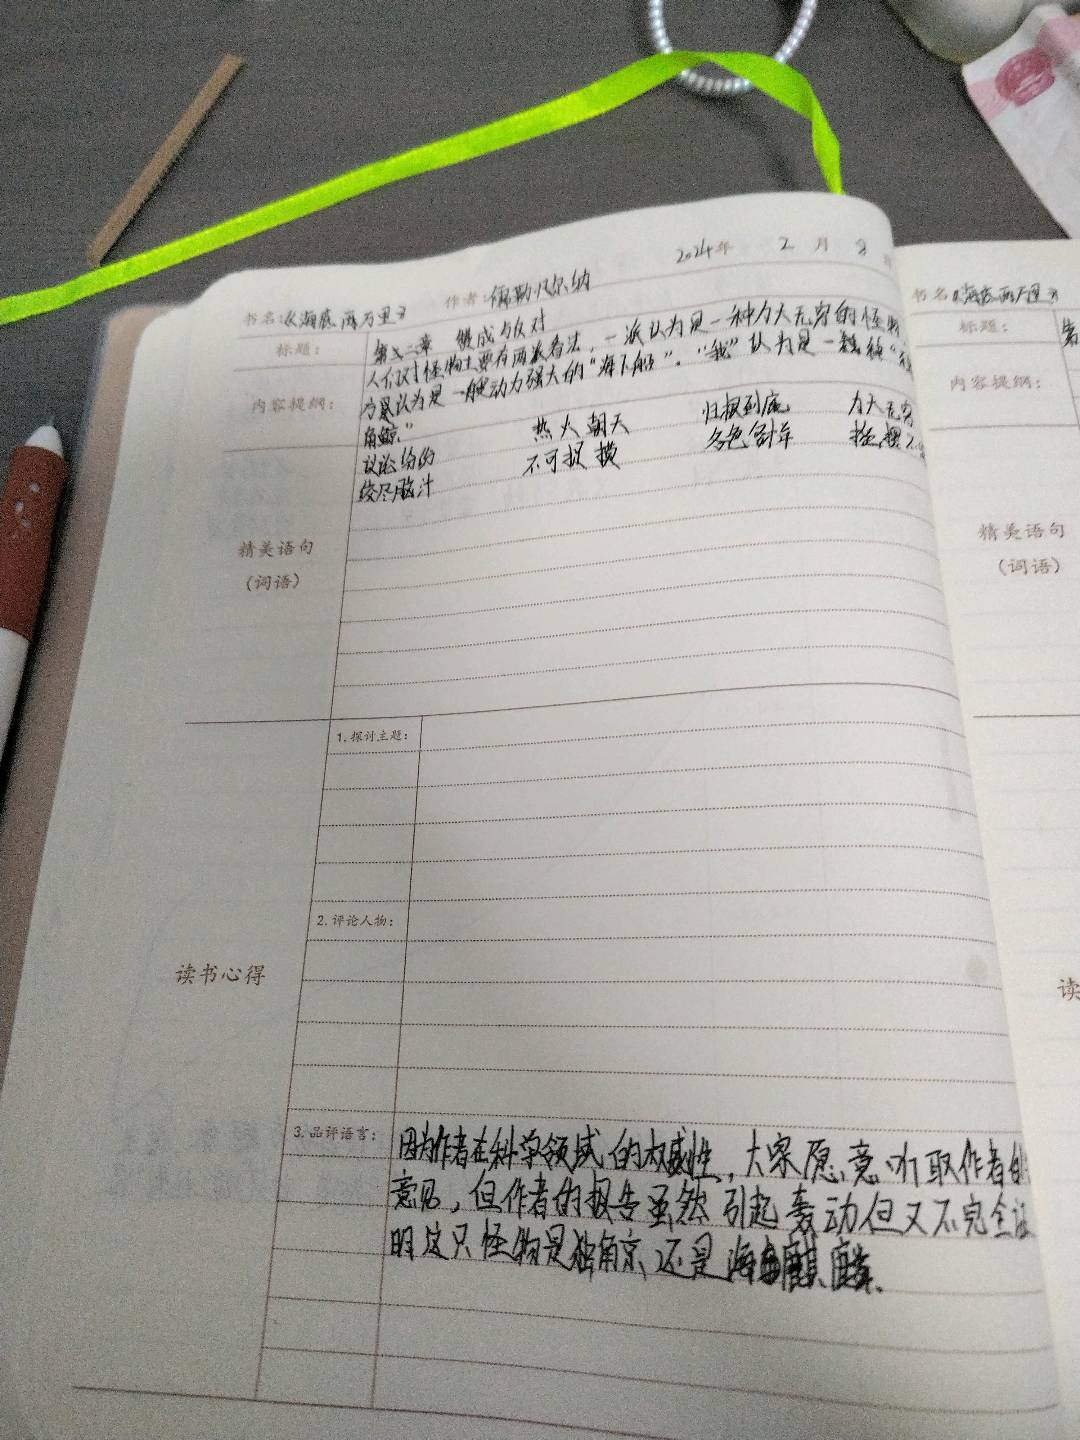 2024年 2月 8
书名:《海底两万里》 作者:儒勒凡尔纳
标题: 第二章 赞成与反对
内容提纲: 人们对怪物主要有两派看法，一派认为是一种力大无穷的怪物
认为是一艘动力强大的“海下船”。“我”认为是一
角鲸”
议论纷纷 热火朝天 归根到底 力大无穷
绞尽脑汁 不可捉摸 各色各样
精美语句
(词语)
读书心得
1.探讨主题:
2.评论人物:
3.品评语言: 因为作者在科学领域的权威性，大家愿意听取作者的
意见，但作者的报告虽然引起轰动但又不完全证
明这只怪物是独角京还是海麒麟、
书名:《海底两万里》
标题: 第
内容提纲:
精美语句
(词语)
读